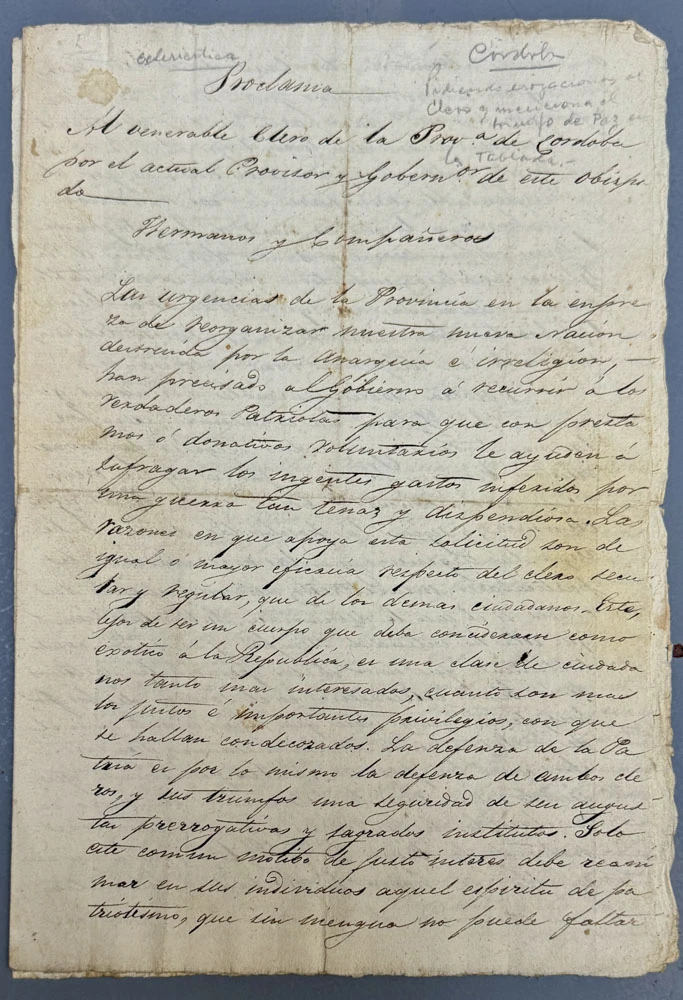 eclesiástica
Córdoba
Proclama
Pidiendo erogaciones al
Clero y menciona el
triunfo de Paz en
la Tablada.-
Al venerable Clero de la Prov.ª de Cordoba
por el actual Provisor y Gobern.or de este Obispa
do
Hermanos y Compañeros
Las urgencias de la Provincia en la enpre
za de reorganizar nuestra nueva Nación
destruida por la Anarquia é irreligion,
han precisado al Gobierno á recurrir á los
verdaderos Patriotas para que con presta
mos ó donativos voluntarios le ayuden á
sufragar los ingentes gastos inferidos por
una guerra tan tenaz y dispendiosa. Las
razones en que apoya esta solicitud son de
igual ó mayor eficacia respecto del clero secu-
lar y regular, que de los demas ciudadanos. Este,
lejos de ser un cuerpo que deba considerarse como
exotico á la Republica, es una clase de ciudada
nos tanto mas interesados, cuanto son mas
los justos é importantes privilegios, con que
se hallan condecorados. La defenza de la Pa
tria es por lo mismo la defenza de ambos cle
ros, y sus triunfos una seguridad de sus augus-
tas prerrogativas y sagrados institutos. Solo
este comun motibo de justo interes debe reani
mar en sus individuos aquel espiritu de pa
triotismo, que sin mengua no puede faltar